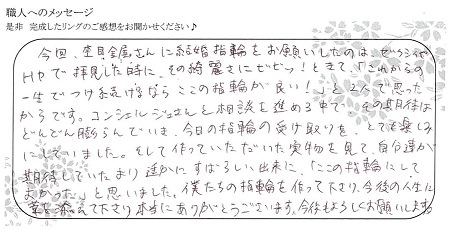 職人へのメッセージ
是非 完成したリングのご感想をお聞かせください♪
今回、杢目金屋さんに結婚指輪をお願いしたのは、ゼクシィや
HPで拝見した時に、その綺麗さにビビッ!ときて、「これからの
一生でつけ続けるならここの指輪が良い!」と2人で思った
からです。コンシェルジュさんと相談を進める中で その期待は
どんどん膨らんでいき、今日の指輪の受け取りを、とても楽しみ
にしていました。そして作っていただいた実物を見て、自分達が
期待していたより遥かにすばらしい出来に、「ここの指輪にして
よかった」と思いました。僕たちの指輪を作って下さり、今後の人生に
華を添えて下さり本当にありがとうございます。今後もよろしくお願いします